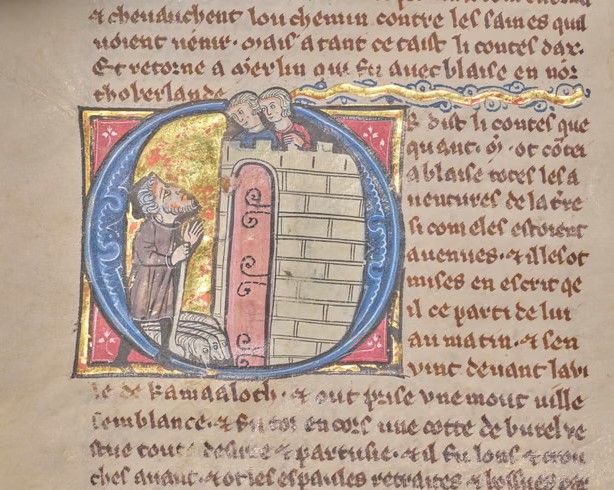 & cheuauchent lou chemin contre les saines quil
uoient uenir. Mais a tant ce taist li contes dax.
Et retorne a Merlin qui fu auec blaise en nor
thoberlande
R dist li contes que
quant. M. ot cōtei
a blaise totes les a
uentures de la tre
si com eles estoient
auenues. & il les ot
mises en escrit qe
il ce parti de lui
au matin. & sen
uint deuant la ui
le de Kamaaloth. & out prise vne mout uille
semblance. & fu toz encors vne cotte de burel ve
stue toute desiree & partusie. & il fu lons & crou
ches auant. & ot les espaules retraites &